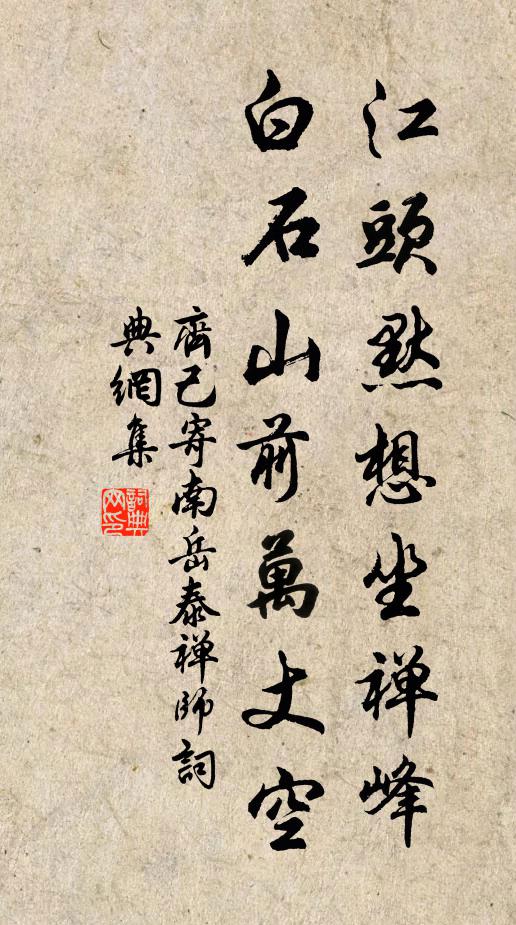 江頭默想坐禅峰
白石山前萬丈空
齊己寄南岳泰禅師詞
典網集
詞典網印